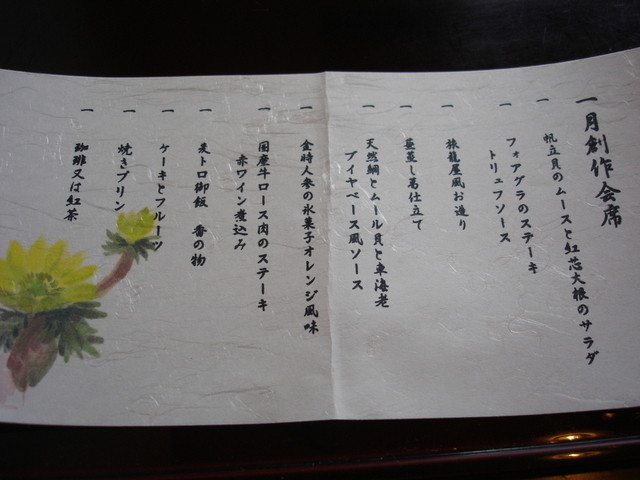 一月創作会席
一 帆立貝のムースと紅芯大根のサラダ
一 フォアグラのステーキ
トリュフソース
一 旅籠屋風お造り
一 蕪蒸し 仕立て
一 天然鯛とムール貝と車海老
ブイヤベース風ソース
一 金時人参の氷菓子オレンジ風味
一 国産牛ロース肉のステーキ
赤ワイン煮込み
一 麦トロ御飯 香の物
一 ケーキとフルーツ
一 焼きプリン
一 珈琲又は紅茶